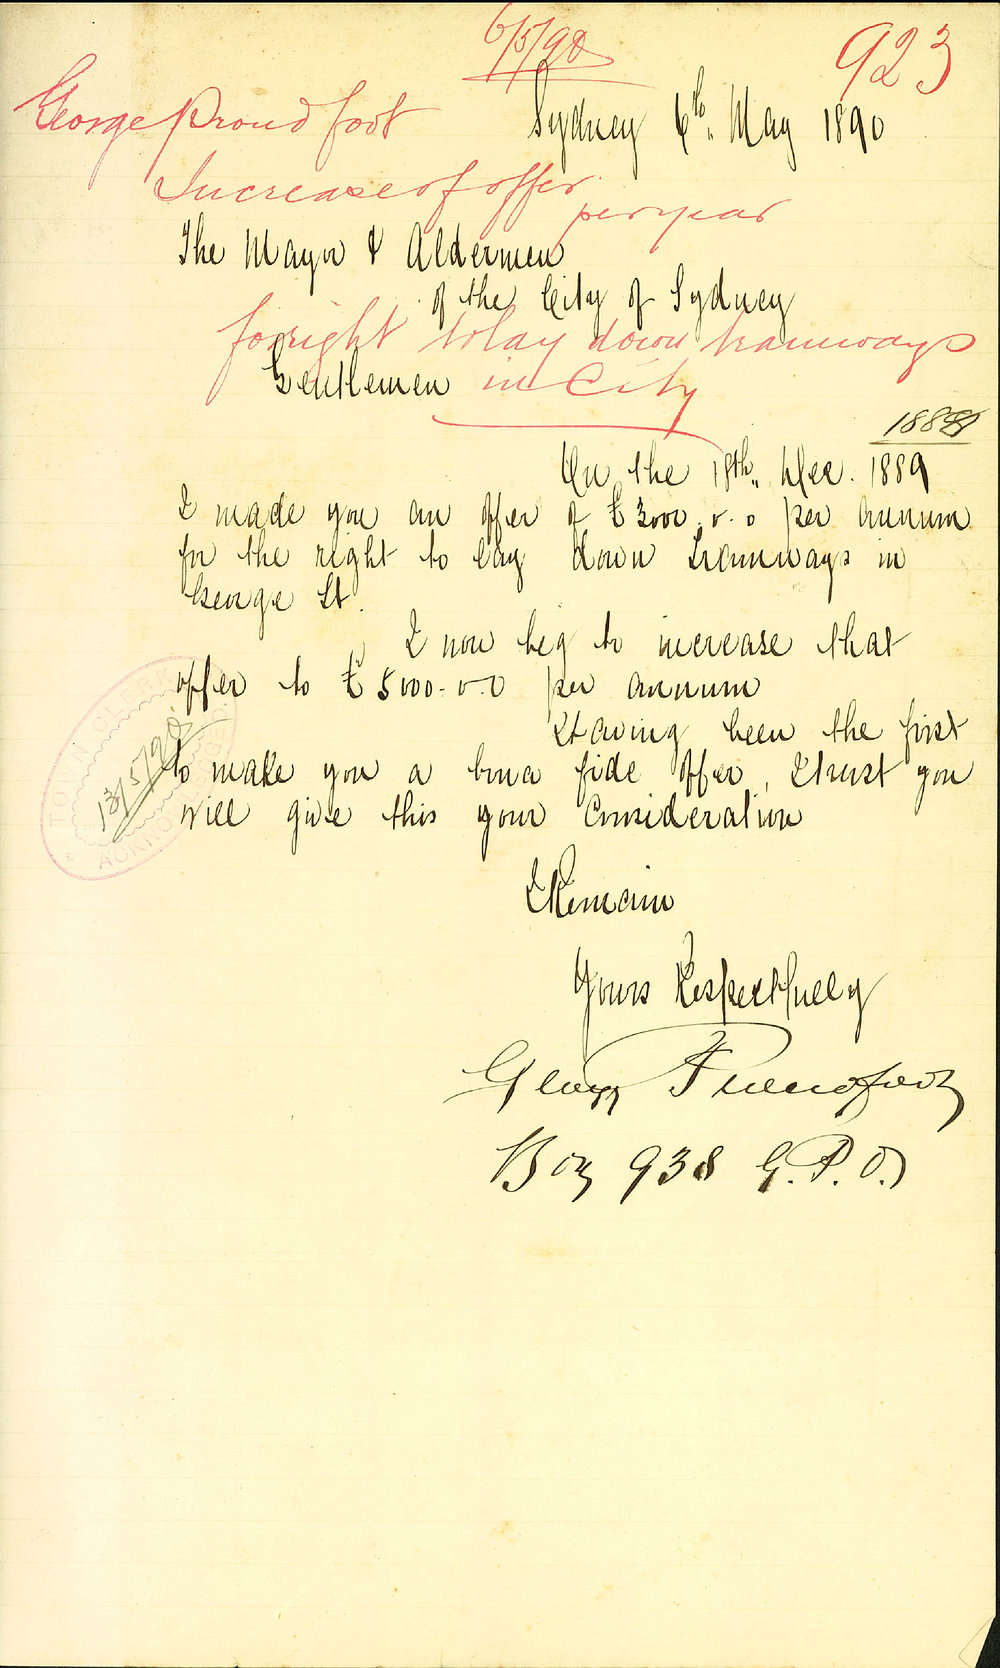 6/5/90
923
George Proudfoot
Sydney 6th. May 1890
Increase of offer
per year
The Mayor & Aldermen
of the City of Sydney
for right to lay down tramways
Gentlemen
in City
1888
On the 18th. Dec. 1889
I made you an offer of £3000.0.0 per annum
for the right to lay down Tramways in
George St.
I now beg to increase that
offer to £5000-0-0 per annum
Having been the first
to make you a bona fide offer, I trust you
will give this your Consideration
TOWN CLERK
13/5/90
ACKNO
I Remain
Yours Respectfully
George Proudfoot
Box 938 G.P.O.